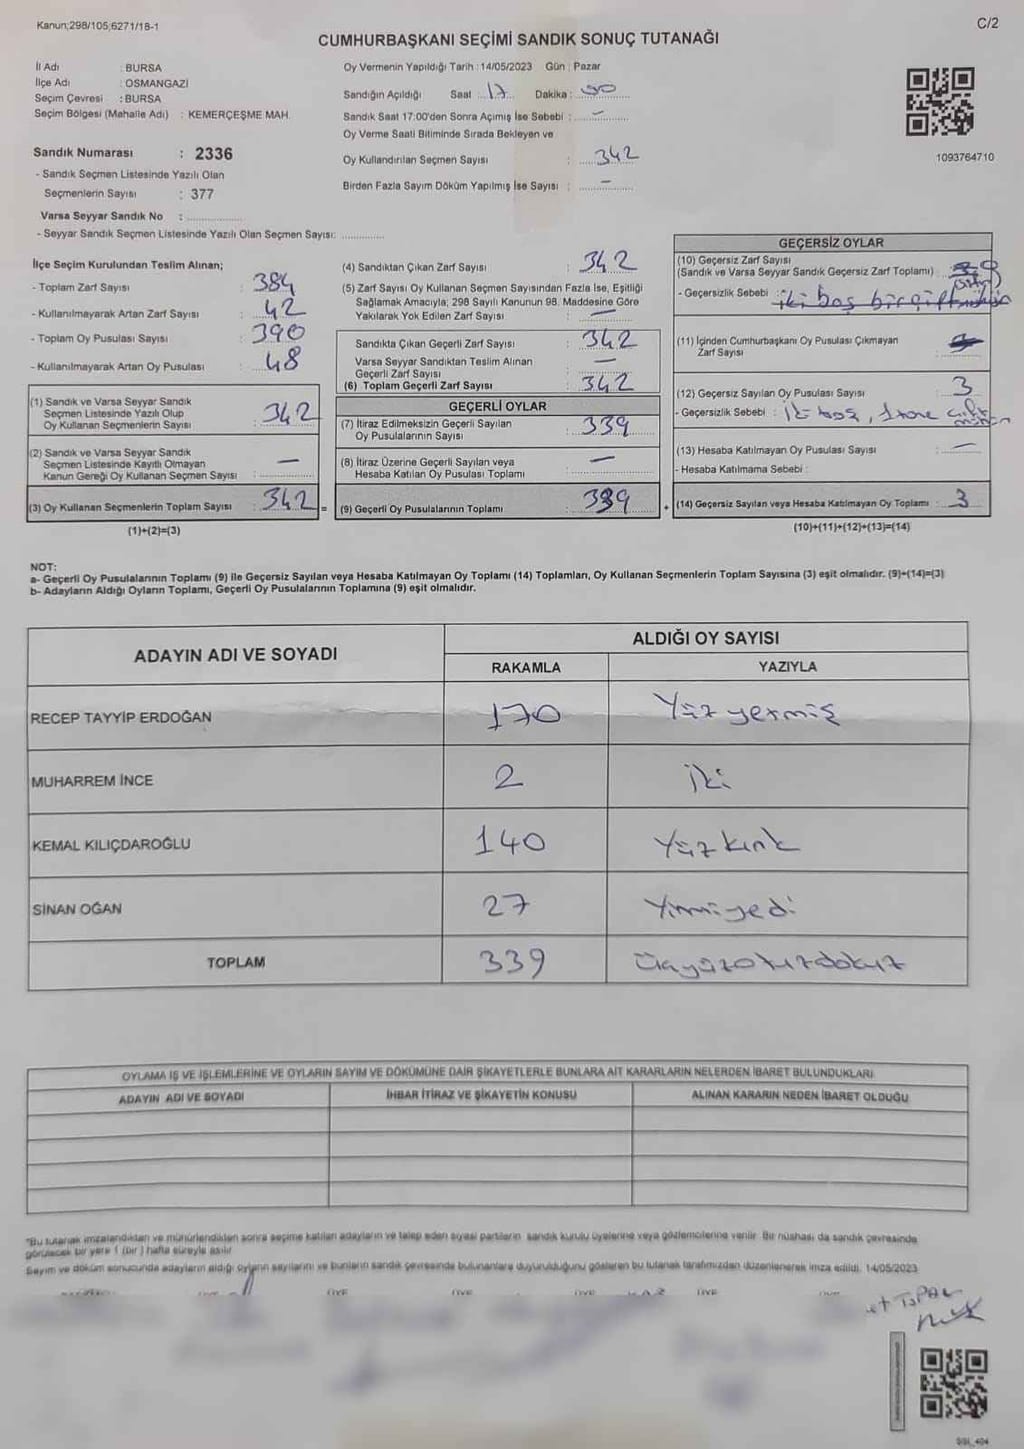 Kanun;298/105;6271/18-1
C/2
CUMHURBAŞKANI SEÇİMİ SANDIK SONUÇ TUTANAĞI
İl Adı : BURSA
İlçe Adı : OSMANGAZİ
Seçim Çevresi : BURSA
Seçim Bölgesi (Mahalle Adı) : KEMERÇEŞME MAH.
Sandık Numarası : 2336
- Sandık Seçmen Listesinde Yazılı Olan
Seçmenlerin Sayısı : 377
Varsa Seyyar Sandık No : ................
- Seyyar Sandık Seçmen Listesinde Yazılı Olan Seçmen Sayısı: ............
Oy Vermenin Yapıldığı Tarih : 14/05/2023 Gün : Pazar
Sandığın Açıldığı Saat : 17 Dakika : 00
Sandık Saat 17:00'den Sonra Açımış İse Sebebi : –
Oy Verme Saati Bitiminde Sırada Bekleyen ve
Oy Kullandırılan Seçmen Sayısı : 342
Birden Fazla Sayım Döküm Yapılmış İse Sayısı : –
1093764710
İlçe Seçim Kurulundan Teslim Alınan;
- Toplam Zarf Sayısı : 384
- Kullanılmayarak Artan Zarf Sayısı : 42
- Toplam Oy Pusulası Sayısı : 390
- Kullanılmayarak Artan Oy Pusulası : 48
(1) Sandık ve Varsa Seyyar Sandık
Seçmen Listesinde Yazılı Olup
Oy Kullanan Seçmenlerin Sayısı : 342
(2) Sandık ve Varsa Seyyar Sandık
Seçmen Listesinde Kayıtlı Olmayan
Kanun Gereği Oy Kullanan Seçmen Sayısı : –
(3) Oy Kullanan Seçmenlerin Toplam Sayısı : 342 =
(1)+(2)=(3)
(4) Sandıktan Çıkan Zarf Sayısı : 342
(5) Zarf Sayısı Oy Kullanan Seçmen Sayısından Fazla İse, Eşitliği
Sağlamak Amacıyla; 298 Sayılı Kanunun 98. Maddesine Göre
Yakılarak Yok Edilen Zarf Sayısı : –
Sandıkta Çıkan Geçerli Zarf Sayısı : 342
Varsa Seyyar Sandıktan Teslim Alınan
Geçerli Zarf Sayısı : –
(6) Toplam Geçerli Zarf Sayısı : 342
GEÇERLİ OYLAR
(7) İtiraz Edilmeksizin Geçerli Sayılan
Oy Pusulalarının Sayısı : 339
(8) İtiraz Üzerine Geçerli Sayılan veya
Hesaba Katılan Oy Pusulası Toplamı : –
(9) Geçerli Oy Pusulalarının Toplamı : 339 +
GEÇERSİZ OYLAR
(10) Geçersiz Zarf Sayısı
(Sandık ve Varsa Seyyar Sandık Geçersiz Zarf Toplamı)
- Geçersizlik Sebebi : iki boş bir çift
(11) İçinden Cumhurbaşkanı Oy Pusulası Çıkmayan
Zarf Sayısı :
(12) Geçersiz Sayılan Oy Pusulası Sayısı : 3
- Geçersizlik Sebebi : iki boş, 1 tane çift
(13) Hesaba Katılmayan Oy Pusulası Sayısı : –
- Hesaba Katılmama Sebebi :
(14) Geçersiz Sayılan veya Hesaba Katılmayan Oy Toplamı : 3
(10)+(11)+(12)+(13)=(14)
NOT:
a- Geçerli Oy Pusulalarının Toplamı (9) ile Geçersiz Sayılan veya Hesaba Katılmayan Oy Toplamı (14) Toplamları, Oy Kullanan Seçmenlerin Toplam Sayısına (3) eşit olmalıdır. (9)+(14)=(3)
b- Adayların Aldığı Oyların Toplamı, Geçerli Oy Pusulalarının Toplamına (9) eşit olmalıdır.
ADAYIN ADI VE SOYADI
ALDIĞI OY SAYISI
RAKAMLA YAZIYLA
RECEP TAYYİP ERDOĞAN 170 Yüz yetmiş
MUHARREM İNCE 2 iki
KEMAL KILIÇDAROĞLU 140 Yüz kırk
SİNAN OĞAN 27 Yirmiyedi
TOPLAM 339 Üçyüzotuzdokuz
OYLAMA İŞ VE İŞLEMLERİNE VE OYLARIN SAYIM VE DÖKÜMÜNE DAİR ŞİKAYETLERLE BUNLARA AİT KARARLARIN NELERDEN İBARET BULUNDUKLARI
ADAYIN ADI VE SOYADI İHBAR İTİRAZ VE ŞİKAYETİN KONUSU ALINAN KARARIN NEDEN İBARET OLDUĞU
"Bu tutanak imzalandıktan ve mühürlendikten sonra seçime katılan adayların ve talep eden siyasi partilerin sandık kurulu üyelerine veya gözlemcilerine verilir. Bir nüshası da sandık çevresinde
görülecek bir yere 1 (bir) hafta süreyle asılır.
Sayım ve döküm sonucunda adayların aldığı oyların sayılarını ve bunların sandık çevresinde bulunanlara duyurulduğunu gösteren bu tutanak tarafımızdan düzenlenerek imza edildi. 14/05/2023